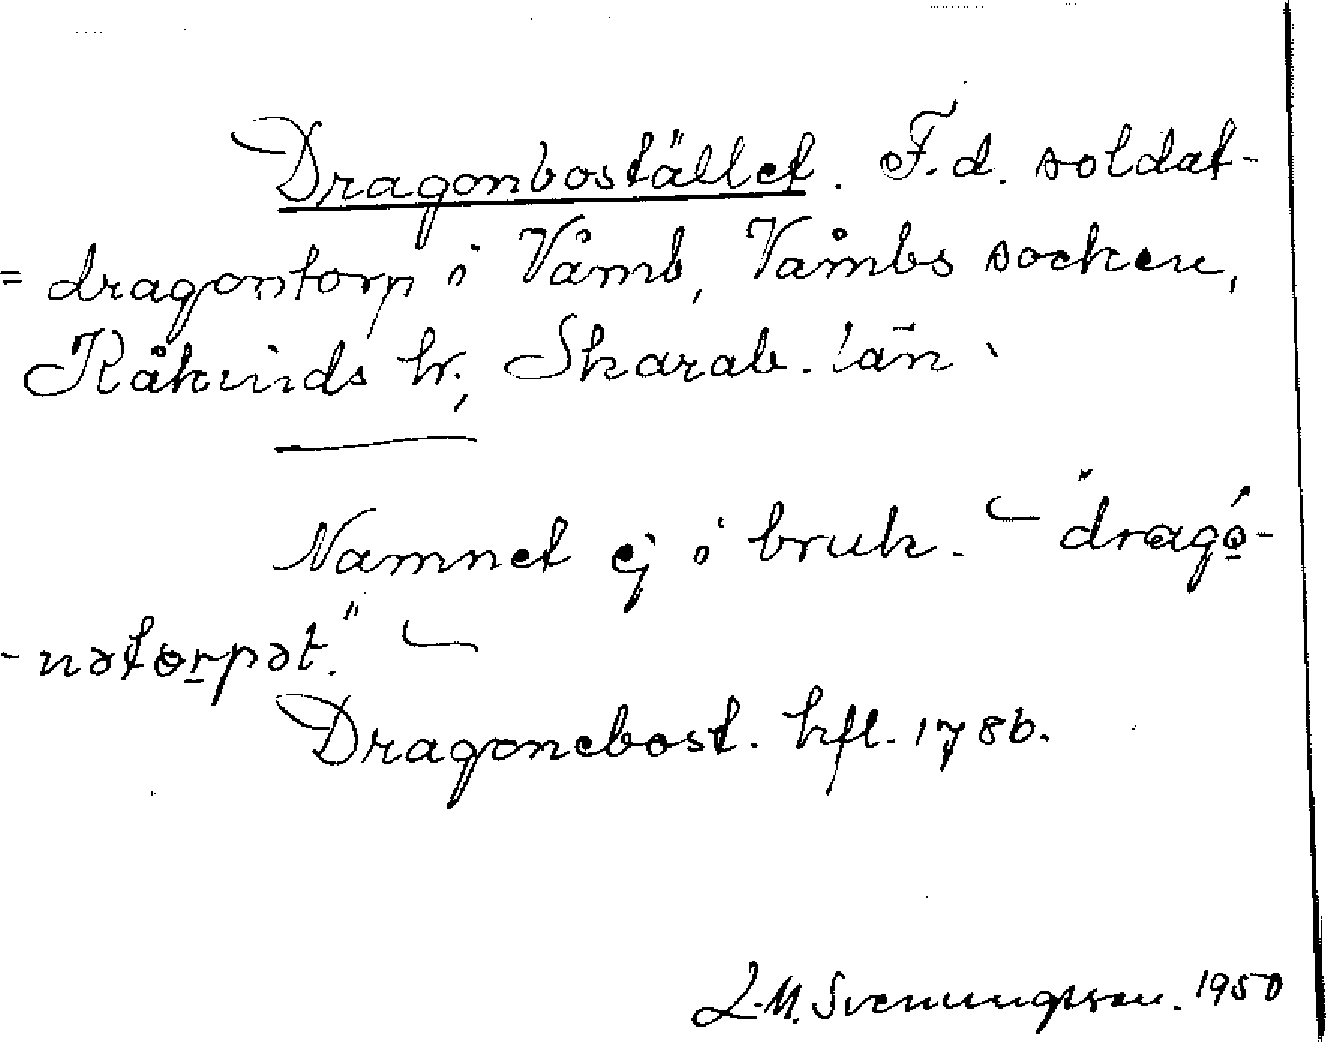 Dragonbostället. F.d. soldat-
= dragontorp i Våmb, Våmbs socken,
Kåkinds hr, Skarab. län.
Namnet ej i bruk. — "dragó-
- nətorpət." —
Dragonebost. hfl. 1786.
L.M. Svenungsson. 1950